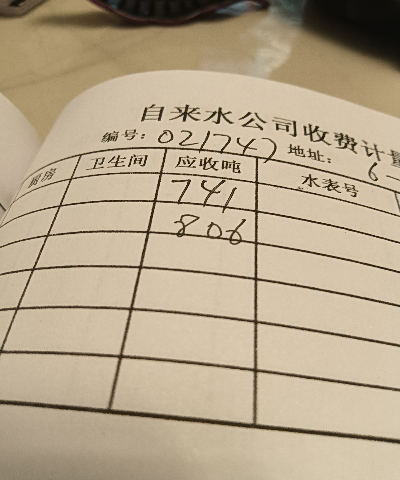 自来水公司收费计量
编号：021747 地址：6-
厨房 卫生间 应收吨 水表号
741
806